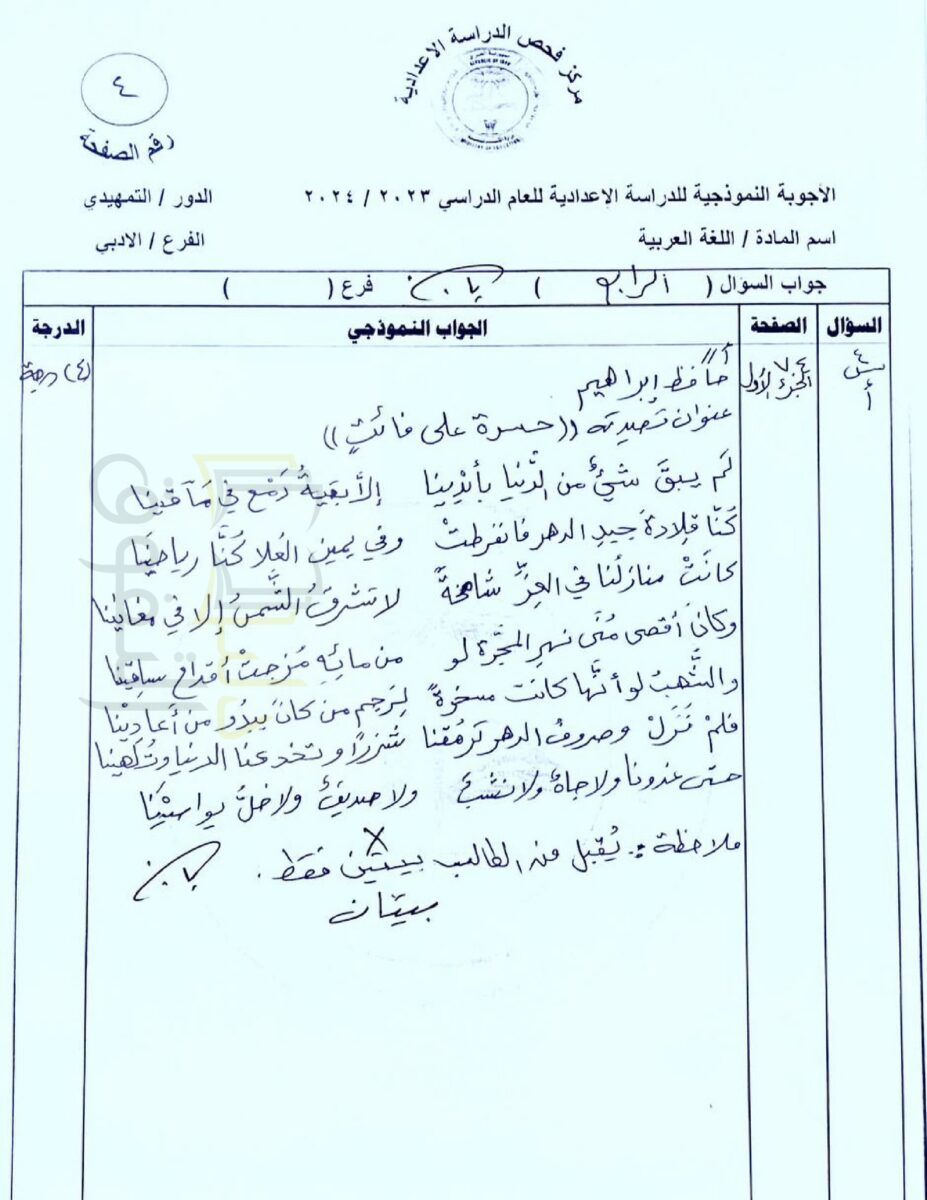 مركز فحص الدراسة الاعدادية
REPUBLIC OF IRAQ
٤
رقم الصفحة
الأجوبة النموذجية للدراسة الإعدادية للعام الدراسي ٢٠٢٣ / ٢٠٢٤
الدور / التمهيدي
اسم المادة / اللغة العربية
الفرع / الادبي
جواب السؤال ( الرابع ) فرع ( )
السؤال الصفحة الجواب النموذجي الدرجة
س٤
أ
٧٤
الجزء الأول
(٤) درجة
أولاً
حافظ إبراهيم
عنوان قصيدته ((حسرة على فائتٍ))
لَم يبقَ شيءٌ من الدُّنيا بأيْدِينا إلاّ بقيةُ دَمْعٍ في مَآقينا
كُنّا قِلادةَ جيدِ الدهرِ فانفرطتْ وفي يمين العُلا كُنَّا رياحينَا
كانَتْ منازلُنا في العِزِّ شامخةً لا تشرقُ الشَّمسُ إلا في مغانينا
وكانَ أقصى مُنَى نهرِ المَجَرَّة لو من مائِهِ مُزجتْ أقداح ساقينا
والشُّهبُ لو أنَّها كانت مسخرةً لِرَجمِ من كانَ يبدُو من أَعادِيْنا
فلمْ نَزَلْ وصروفُ الدهرِ تَرمُقنا شَزرًا وتخدعنا الدنيا وتُلهينا
حتى غدونا ولا جاهٌ ولا نشبٌ ولا صديقٌ ولا خلٌّ يواسيْنَا
ملاحظة :. يُقبل من الطالب بيتين فقط .
بيتان